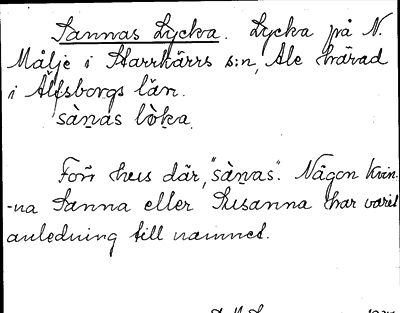 Sannas Lycka. Lycka på N.
Målje i Starrkärrs s:n, Ale härad
i Älfsborgs län.
sàṉas lòka.
Förr hus där, "sàṉas". Någon kvin-
-na Sanna eller Susanna har varit
anledning till namnet.